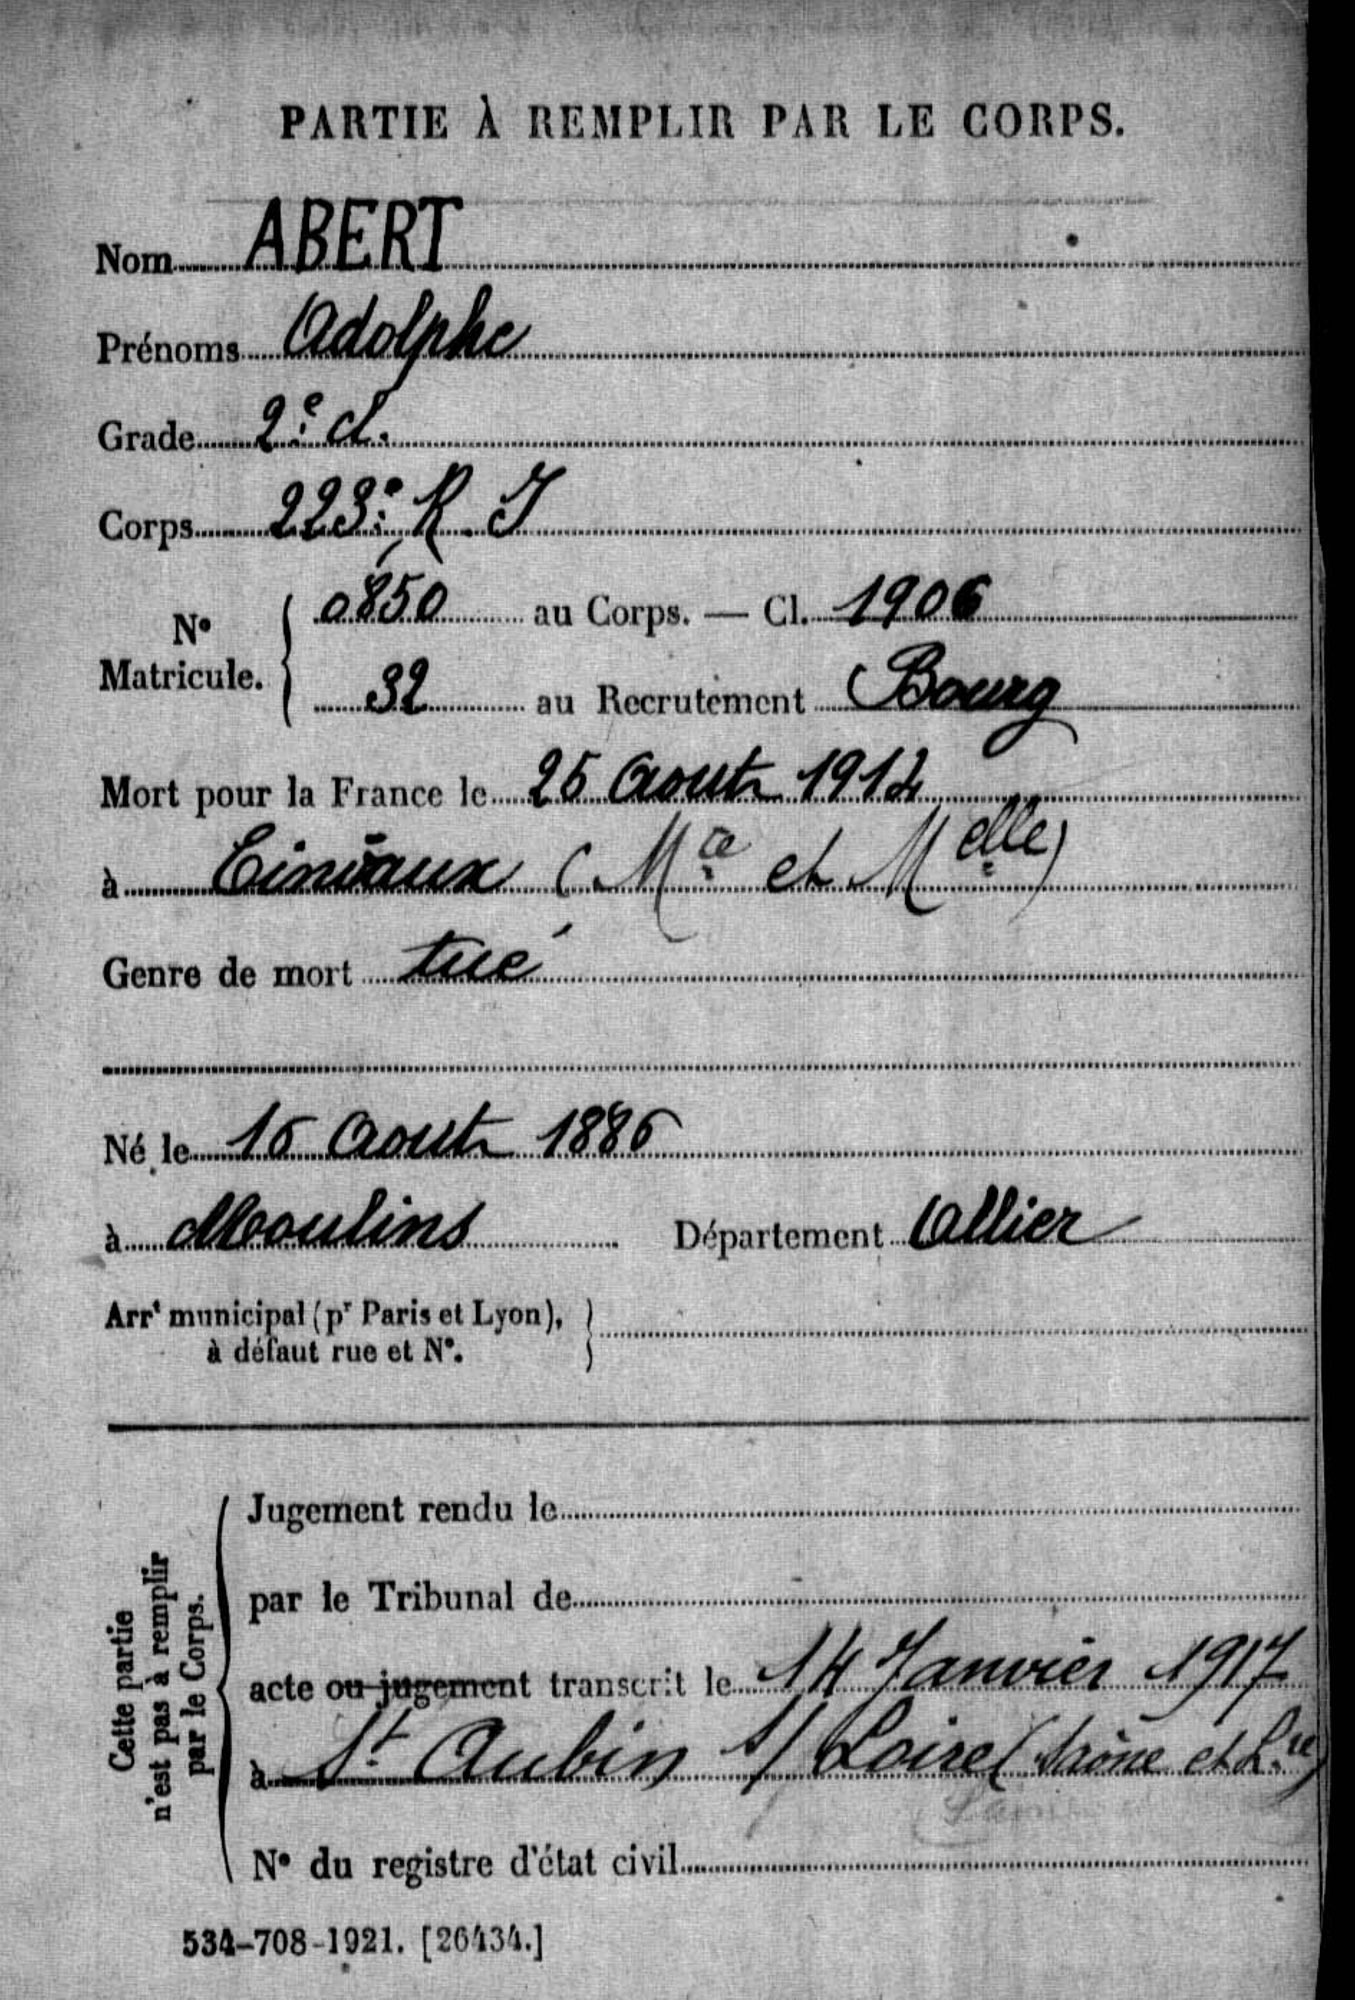 PARTIE À REMPLIR PAR LE CORPS.
Nom ABERT
Prénoms Adolphe
Grade 2e cl.
Corps 223e R. I
No Matricule. { 0850 au Corps. — Cl. 1906
32 au Recrutement Bourg
Mort pour la France le 25 Aout 1914
à Einvaux (Mthe et Melle)
Genre de mort tué
Né le 16 Aout 1886
à Moulins Département Allier
Arrt municipal (pr Paris et Lyon), à défaut rue et No. }
Cette partie n'est pas à remplir par le Corps.
Jugement rendu le
par le Tribunal de
acte ou jugement transcrit le 14 Janvier 1917
à St Aubin s/ Loire (Saône et Lre)
No du registre d'état civil
534-708-1921. [26434.]